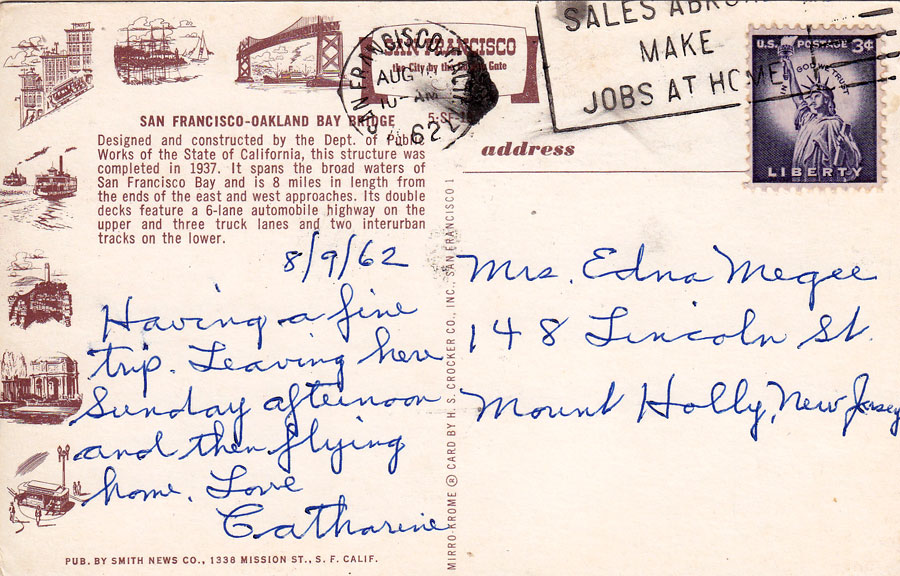 SAN FRANCISCO
the City by the Golden Gate
SAN FRANCISCO, CALIF.
AUG
10 AM
1962
SALES ABROAD
MAKE
JOBS AT HOME
U.S. POSTAGE 3¢
IN GOD WE TRUST
LIBERTY
SAN FRANCISCO-OAKLAND BAY BRIDGE
Designed and constructed by the Dept. of Public
Works of the State of California, this structure was
completed in 1937. It spans the broad waters of
San Francisco Bay and is 8 miles in length from
the ends of the east and west approaches. Its double
decks feature a 6-lane automobile highway on the
upper and three truck lanes and two interurban
tracks on the lower.
address
8/9/62
Having a fine
trip. Leaving here
Sunday afternoon
and then flying
home. Love
Catharine
Mrs. Edna Megee
148 Lincoln St.
Mount Holly, New Jersey
MIRRO-KROME ® CARD BY H. S. CROCKER CO., INC., SAN FRANCISCO 1
PUB. BY SMITH NEWS CO., 1338 MISSION ST., S. F. CALIF.